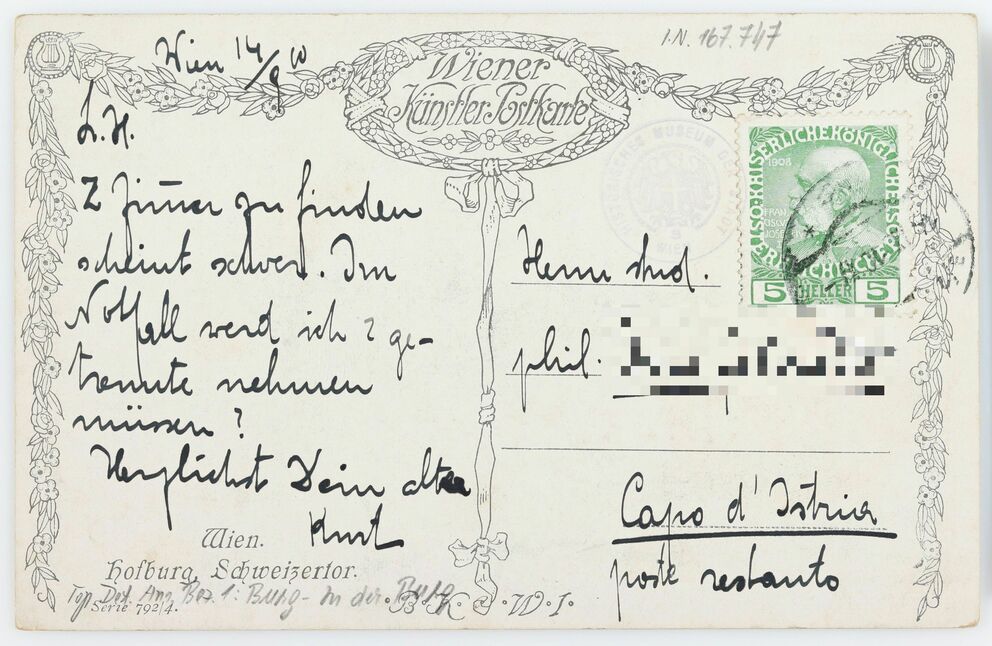 Wien 14/9 10
I.N. 167.747
Wiener
Künstler-Postkarte
HISTORISCHES MUSEUM DER STADT
WIEN
5
KAISERLICHE KÖNIGLICHE
ÖSTERREICHISCHE
1908
5 HELLER 5
L. H.
2 Zimmer zu finden
scheint schwer. Im
Notfall werd ich 2 ge-
trennte nehmen
müssen?
Herzlichst Dein alter
Kurt
Herrn stud.
phil.
Capo d'Istria
poste restante
Wien.
Hofburg, Schweizertor.
Top Dot. Anz Bez. 1: Burg - In der Burg
Serie 792/4.
B·K·W·I·